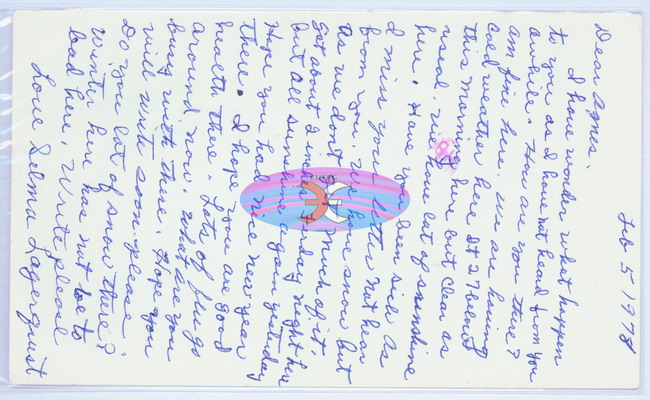 Feb 5 1978
Dear Agnes.
I have wonder what happen
to you as I have not heard from you
awhile. How are you there?
am fine here. We are having
cold weather here It 27 below
this morning here but clear as
usual. We have lot of sunshine
here. Have you been sick as
I miss your letter not hear
from you. We have snow but
as we don't get much of it.
Got about 2 inches Saturday night here
but all sunshine again yesterday
Hope you had nice new year
there. I hope you are good
health there. Lots of flu go
around now. What are you
busy with there. Hope you
will write soon please.
Do you lot of snow there?
Winter here has not be to
bad here. Write please
Love Selma Lagerquist